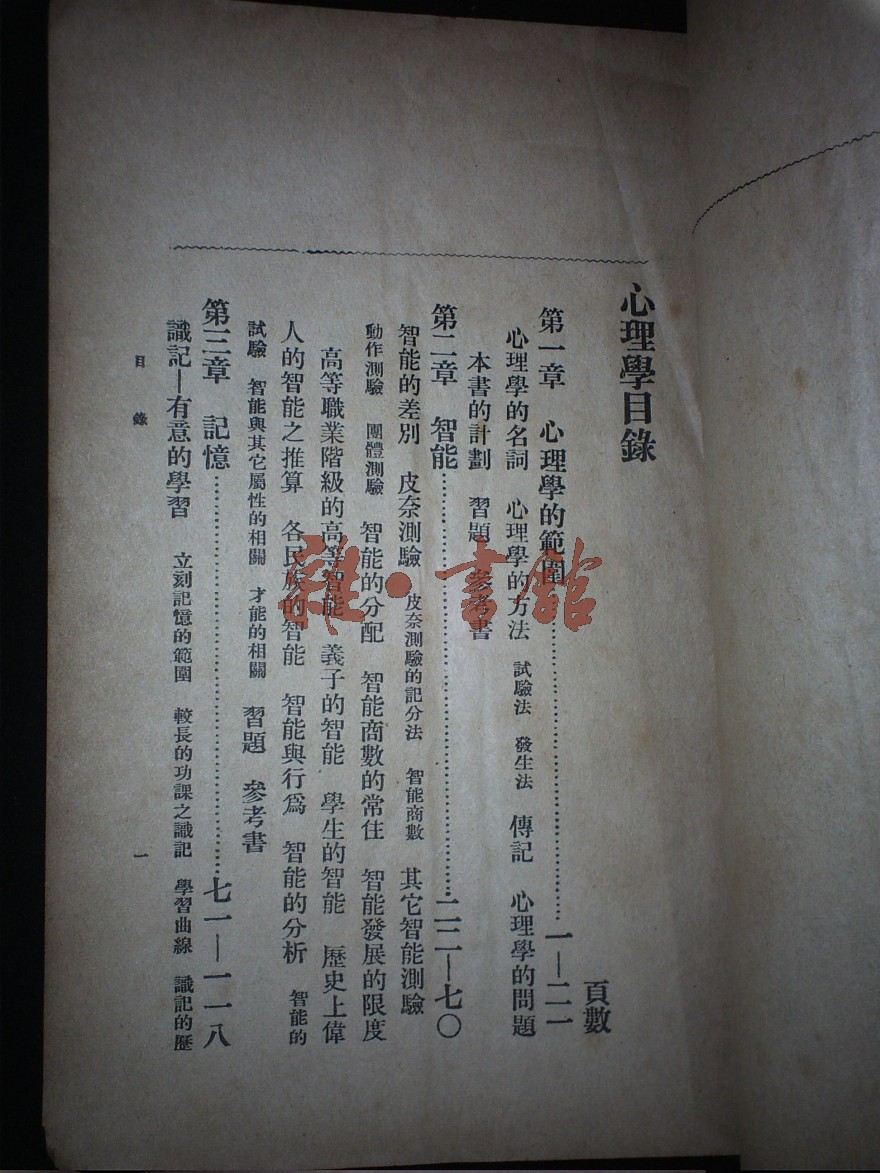 心理學目錄
頁數
第一章　心理學的範圍……一—二一
心理學的名詞　心理學的方法　試驗法　發生法　傳記　心理學的問題
本書的計劃　習題　參考書
第二章　智能……二二—七〇
智能的差別　皮奈測驗　皮奈測驗的記分法　智能商數　其它智能測驗
動作測驗　團體測驗　智能的分配　智能商數的常住　智能發展的限度
高等職業階級的高等智能　義子的智能　學生的智能　歷史上偉
人的智能之推算　各民族的智能　智能與行爲　智能的分析　智能的
試驗　智能與其它屬性的相關　才能的相關　習題　參考書
第三章　記憶……七一—一一八
識記—有意的學習　立刻記憶的範圍　較長的功課之識記　學習曲線　識記的歷
目錄
一
雜·書館